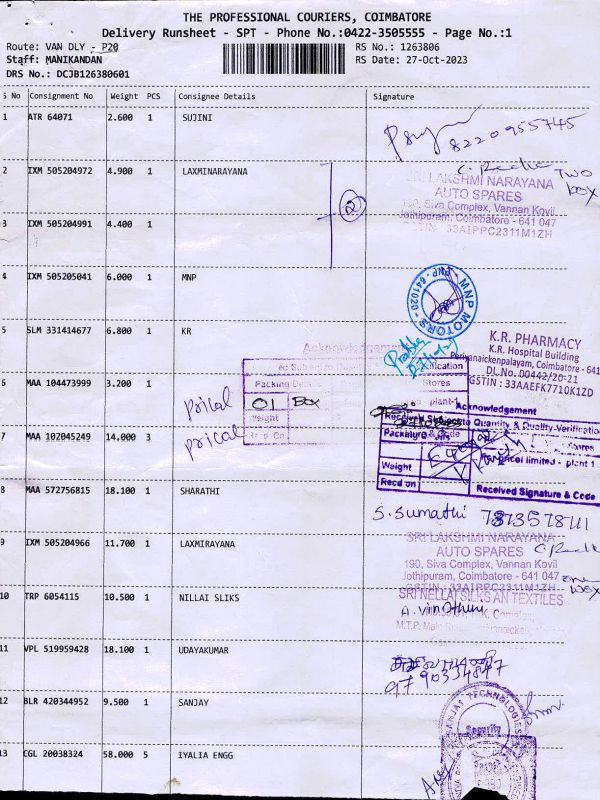 THE PROFESSIONAL COURIERS, COIMBATORE
Delivery Runsheet - SPT - Phone No.:0422-3505555 - Page No.:1
Route: VAN DLY - P20
RS No.: 1263806
Staff: MANIKANDAN
RS Date: 27-Oct-2023
DRS No.: DCJB126380601
S No Consignment No Weight PCS Consignee Details Signature
1 ATR 64071 2.600 1 SUJINI
8220955745
2 IXM 505204972 4.900 1 LAXMINARAYANA
TWO BOX
SRI LAKSHMI NARAYANA
AUTO SPARES
190, Siva Complex, Vannan Kovil
Jothipuram, Coimbatore - 641 047
GSTIN : 33AIPPC2311M1ZH
3 IXM 505204991 4.400 1
2
4 IXM 505205041 6.000 1 MNP
MNP MOTORS
MNP - 641020
5 SLM 331414677 6.800 1 KR
K.R. PHARMACY
K.R. Hospital Building
Periyanaickenpalayam, Coimbatore - 641
DL.No.00442/20-21
GSTIN : 33AAEFK7710K1ZD
Acknowledgement
Packing
Stores
01 BOX
plant-1
Weight
6 MAA 104473999 3.200 1
prical
Acknowledgement
Received Subject to Quantity & Quality Verification
7 MAA 102045249 14.000 3
prical
Stores
Pricol limited - plant 1
Weight
Recd on Received Signature & Code
8 MAA 572756815 18.100 1 SHARATHI
S. Sumathi
9 IXM 505204966 11.700 1 LAXMIRAYANA
SRI LAKSHMI NARAYANA
AUTO SPARES
190, Siva Complex, Vannan Kovil
Jothipuram, Coimbatore - 641 047
one box
GSTIN : 33AIPPC2311M1ZH
10 TRP 6054115 10.500 1 NILLAI SLIKS
SRI NELLAI SILKS AN TEXTILES
11 VPL 519959428 18.100 1 UDAYAKUMAR
12 BLR 420344952 9.500 1 SANJAY
TECHNOLOGIES
Security
13 CGL 20038324 58.000 5 IYALIA ENGG